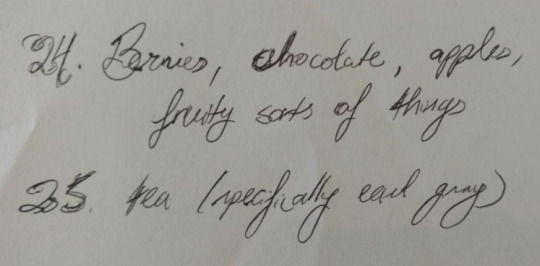 24. Berries, chocolate, apples,
fruity sorts of things
25. tea (specifically earl gray)